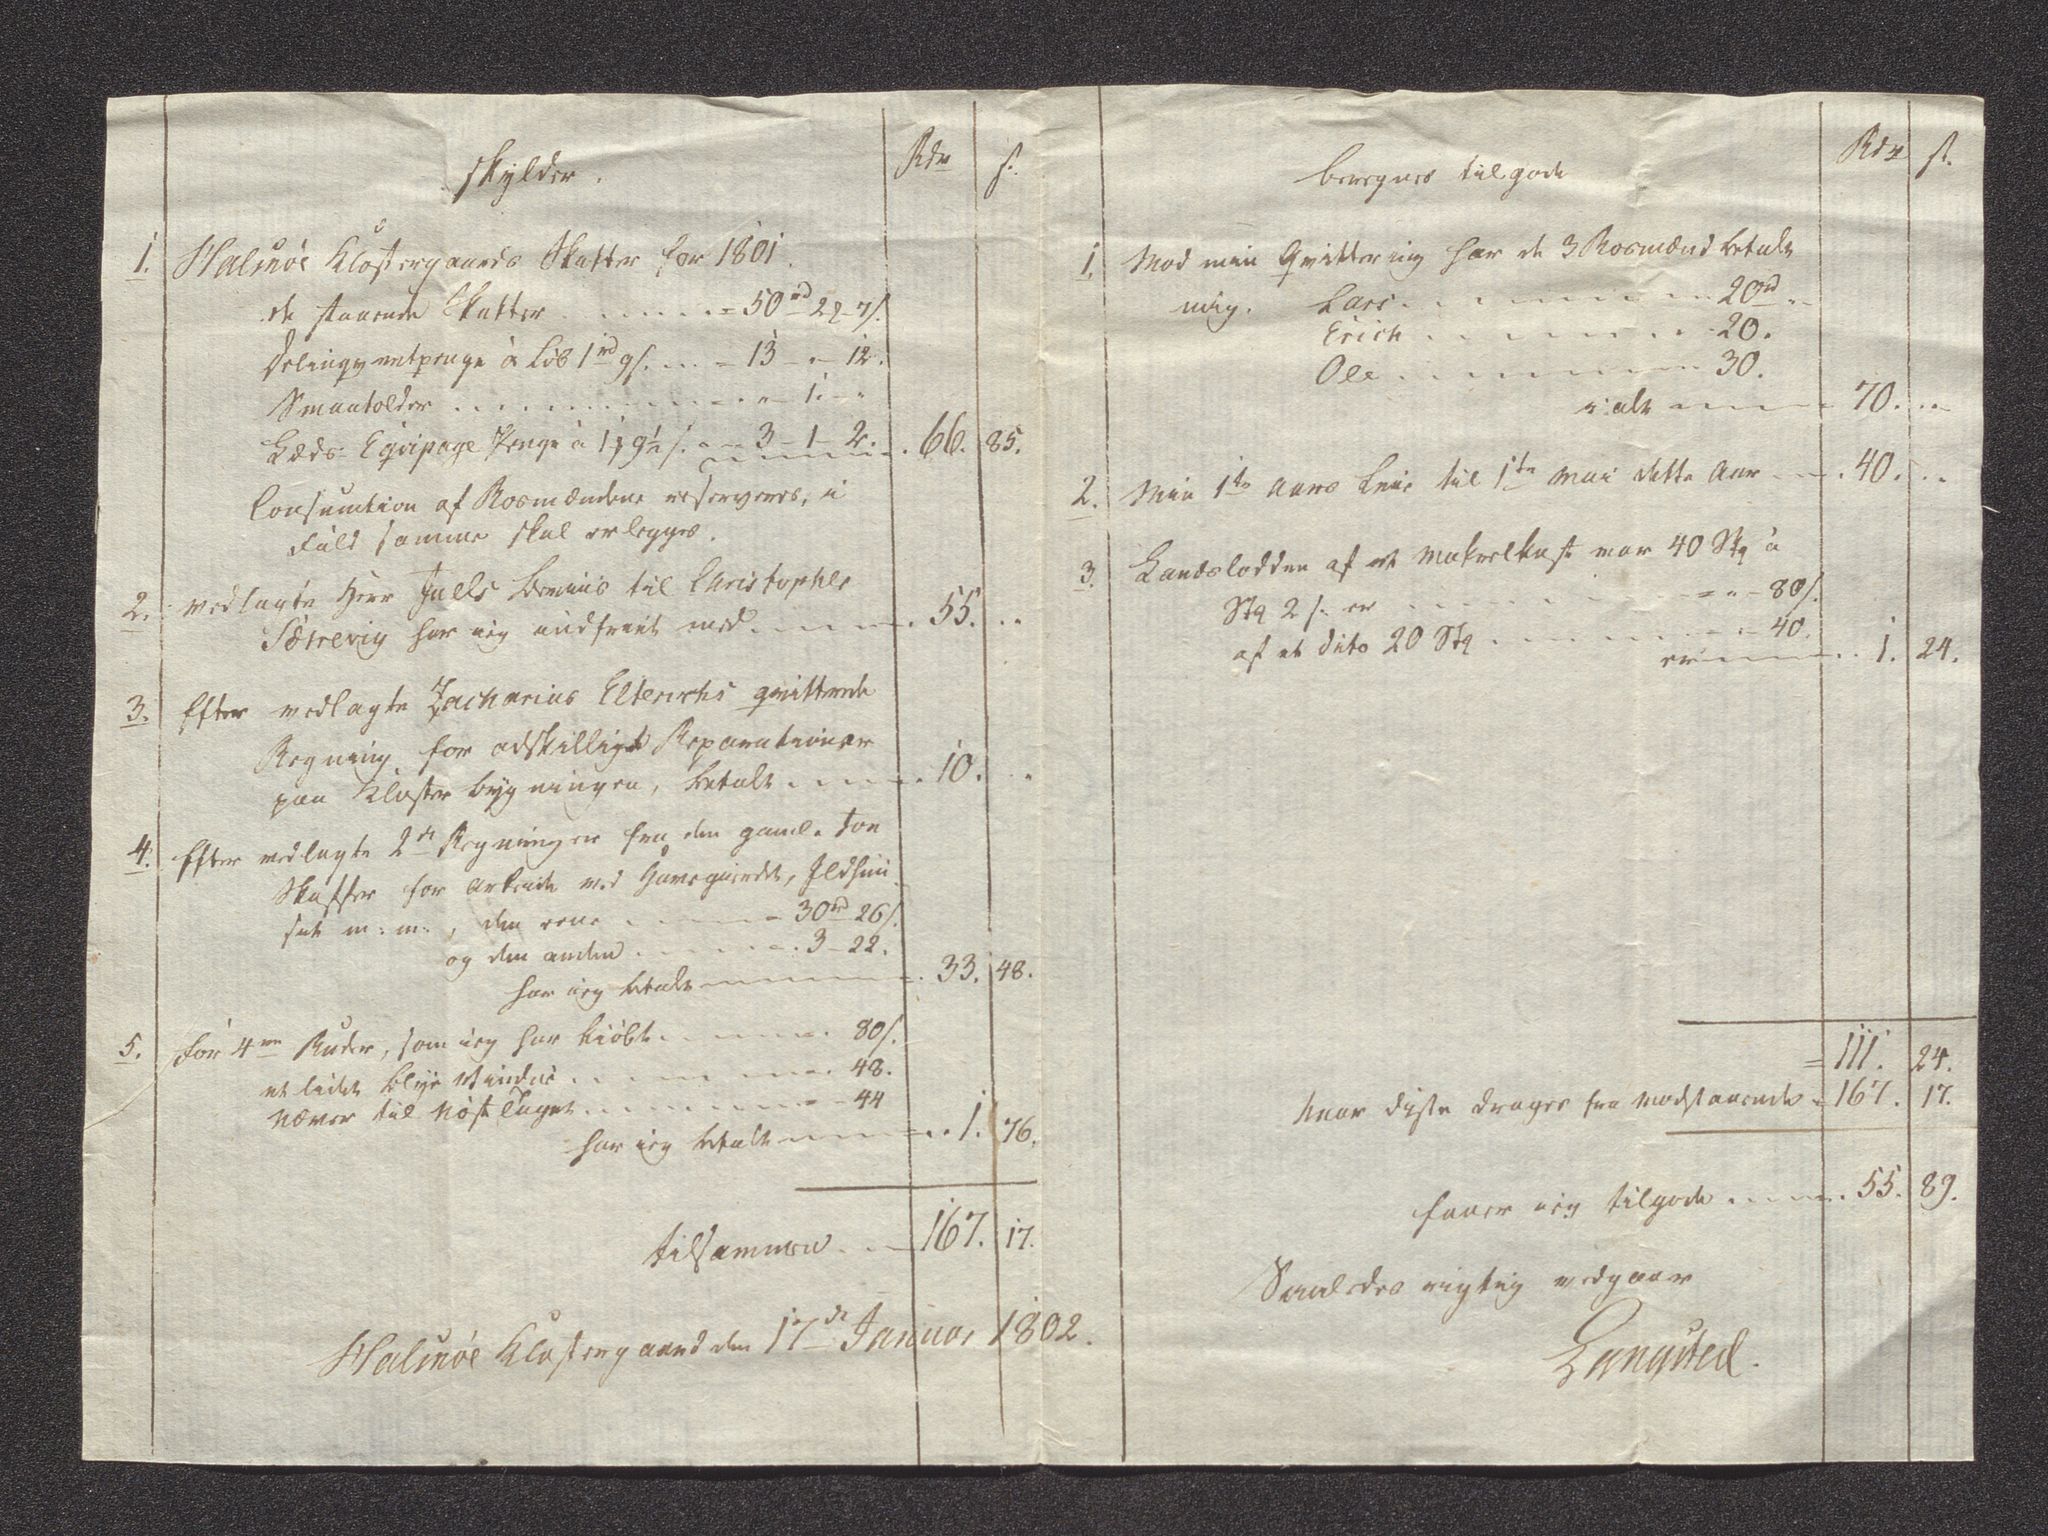 skylder. Rdr s.
1. Halsnöe Klostergaards Skatter for 1801.
de staaende Skatter 50 rd 2 ƺ 7 s.
Delinqventpenge a Löb 1 rd 9 s. 13 - " - 12.
Smaatolder 1. -
Læds: Eqvipage Penge a 1 ƺ 9½ s. 3 - 1 - 2. 66. 85.
Consumtion af Rosmændene reserveres, i
Fald samme skal erlegges.
2. vedlagte Herr Juells beviis til Christopher
Sætrevig har ieg indfriet med 55.
3. Efter vedlagte Zacharias qvitterede
Regning for adskillige Reparationer
paa Kloster bygningen, betalt 10.
4. Efter vedlagte 2de Regninger fra den gaml. Jon
Skaffer for Arbeide ved Havegierdet, Ildhuu
set m: m:, den eene 30 rd 26 s.
og den anden 3 - 22.
har ieg betalt 33. 48.
5. For 4re Ruder, som ieg har kiöbt 80 s.
et lidet blye Vindue 48.
Næver til Nöst Taget 44
har ieg betalt 1. 76.
tilsammen 167. 17.
Halsnöe Klostergaard den 17de Januar 1802.
beregnes tilgode Rdr s.
1. Mod min Qvittering har de 3 Rosmænd betalt
mig. Lars 20 rd
Erich 20.
Ole 30.
i alt 70.
2. Min 1te Aars Leie til 1te Mai dette Aar 40.
3. Landslodden af et Makrelkast var 40 Stq a
Stq 2 s. er 80 s.
af et dito 20 Stq 40.
er 1. 24.
111. 24.
hvor diste drages fra modstaaende 167. 17.
faaer ieg tilgode 55. 89.
Saaledes rigtig vedgaar
Langsted.